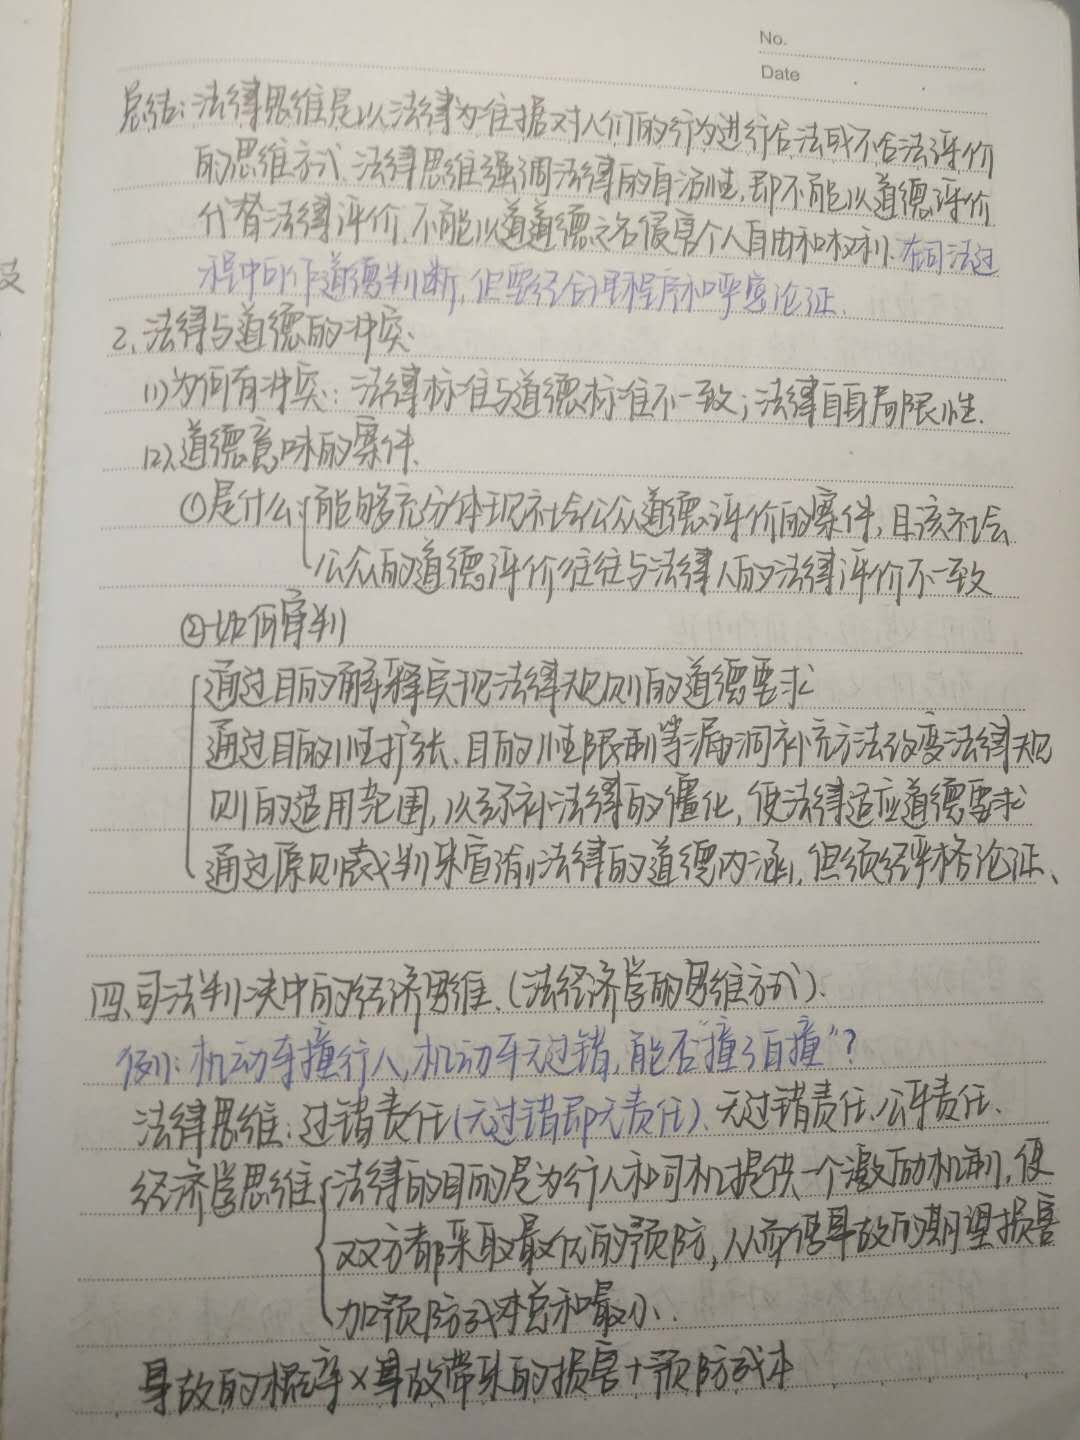 No.
Date
总结:法律思维是以法律为准据对人们的行为进行合法或不合法评价
的思维方式.法律思维强调法律的自洽性,即不能以道德评价
代替法律评价.不能以道道德之名侵害个人自由和权利.在司法过
程中可作道德判断,但要经合理程序和严密论证.
2、法律与道德的冲突.
(1)为何有冲突:法律标准与道德标准不一致;法律自身局限性.
(2)、道德意味的案件.
①是什么 能够充分体现社会公众道德评价的案件,且该社会
公众的道德评价往往与法律人的法律评价不一致
②如何审判
通过目的解释实现法律规则的道德要求
通过目的性扩张、目的性限制等漏洞补充方法改变法律规
则的适用范围,以弥补法律的僵化,使法律适应道德要求
通过原则裁判来宣谕法律的道德内涵,但须经严格论证、
四、司法判决中的经济思维.(法经济学的思维方式).
例:机动车撞行人,机动车无过错,能否"撞了白撞"?
法律思维:过错责任(无过错即无责任)、无过错责任、公平责任、
经济学思维 法律的目的是为行人和司机提供一个激励机制,使
双方都采取最优的预防,从而使事故的期望损害
加预防成本总和最小.
事故的概率×事故带来的损害+预防成本
支